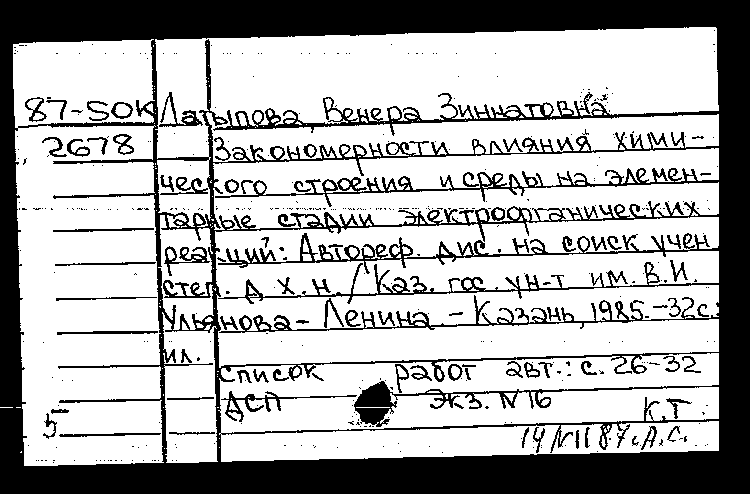 87-50К Латыпова, Венера Зиннатовна
2678 Закономерности влияния хими-
ческого строения и среды на элемен-
тарные стадии электроорганических
реакций: Автореф. дис. на соиск учен
степ. д х.н. / Каз. гос. ун-т им. В.И.
Ульянова-Ленина. - Казань, 1985.-32с.:
ил.
список работ авт.: с. 26-32
ДСП Экз. N 16
5 К.Г.
87.А.С.